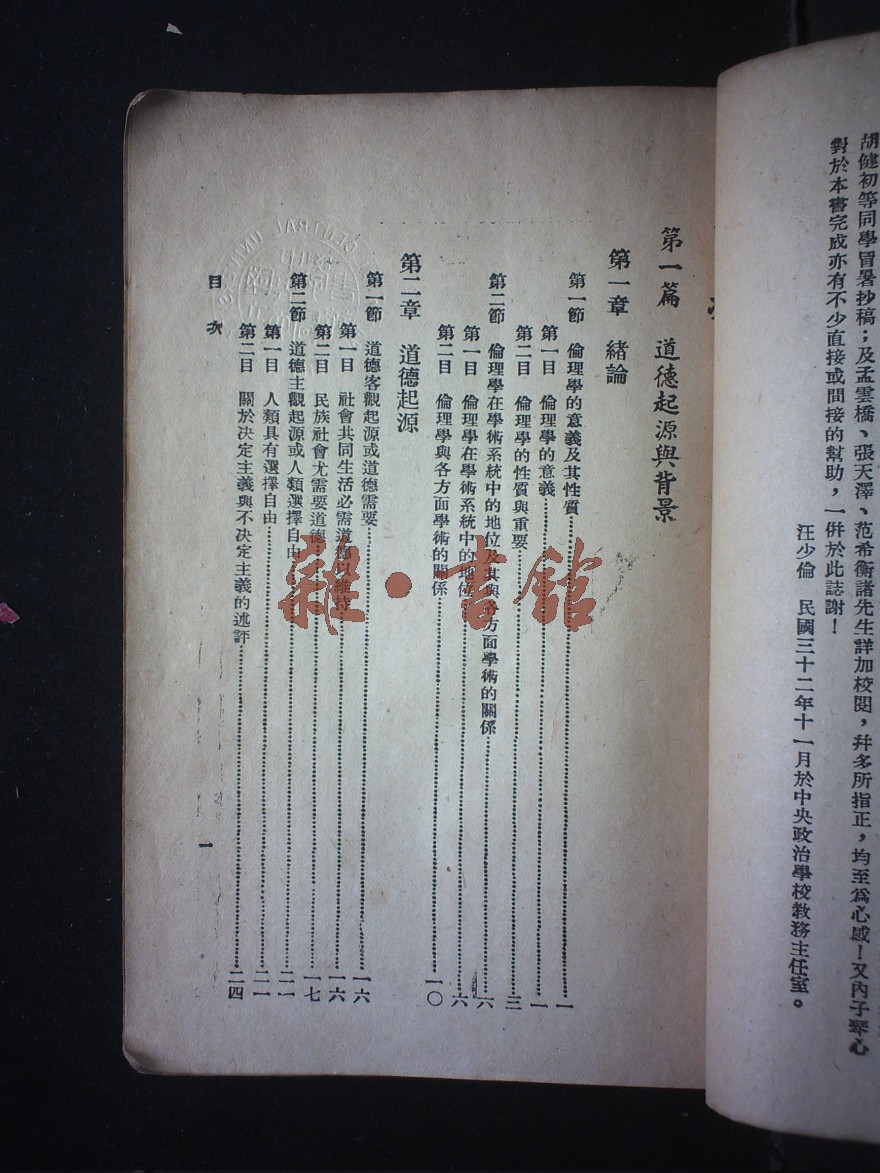 胡健初等同學冒暑抄稿；及孟雲橋、張天澤、范希衡諸先生詳加校閱，幷多所指正，均至爲心感！又內子琴心
對於本書完成亦有不少直接或間接的幫助，一併於此誌謝！
汪少倫　民國三十二年十一月於中央政治學校教務主任室。
第一篇　道德起源與背景
第一章　緒論
第一節　倫理學的意義及其性質……一
第一目　倫理學的意義……一
第二目　倫理學的性質與重要……三
第二節　倫理學在學術系統中的地位及其與各方面學術的關係……六
第一目　倫理學在學術系統中的地位……六
第二目　倫理學與各方面學術的關係……一〇
第二章　道德起源
第一節　道德客觀起源或道德需要……一六
第一目　社會共同生活必需道德以維持……一六
第二目　民族社會尤需要道德……一七
第二節　道德主觀起源或人類選擇自由……二一
第一目　人類具有選擇自由……二一
第二目　關於決定主義與不決定主義的述評……二四
目次
一
雜·書館
CENTRAL UNIVE